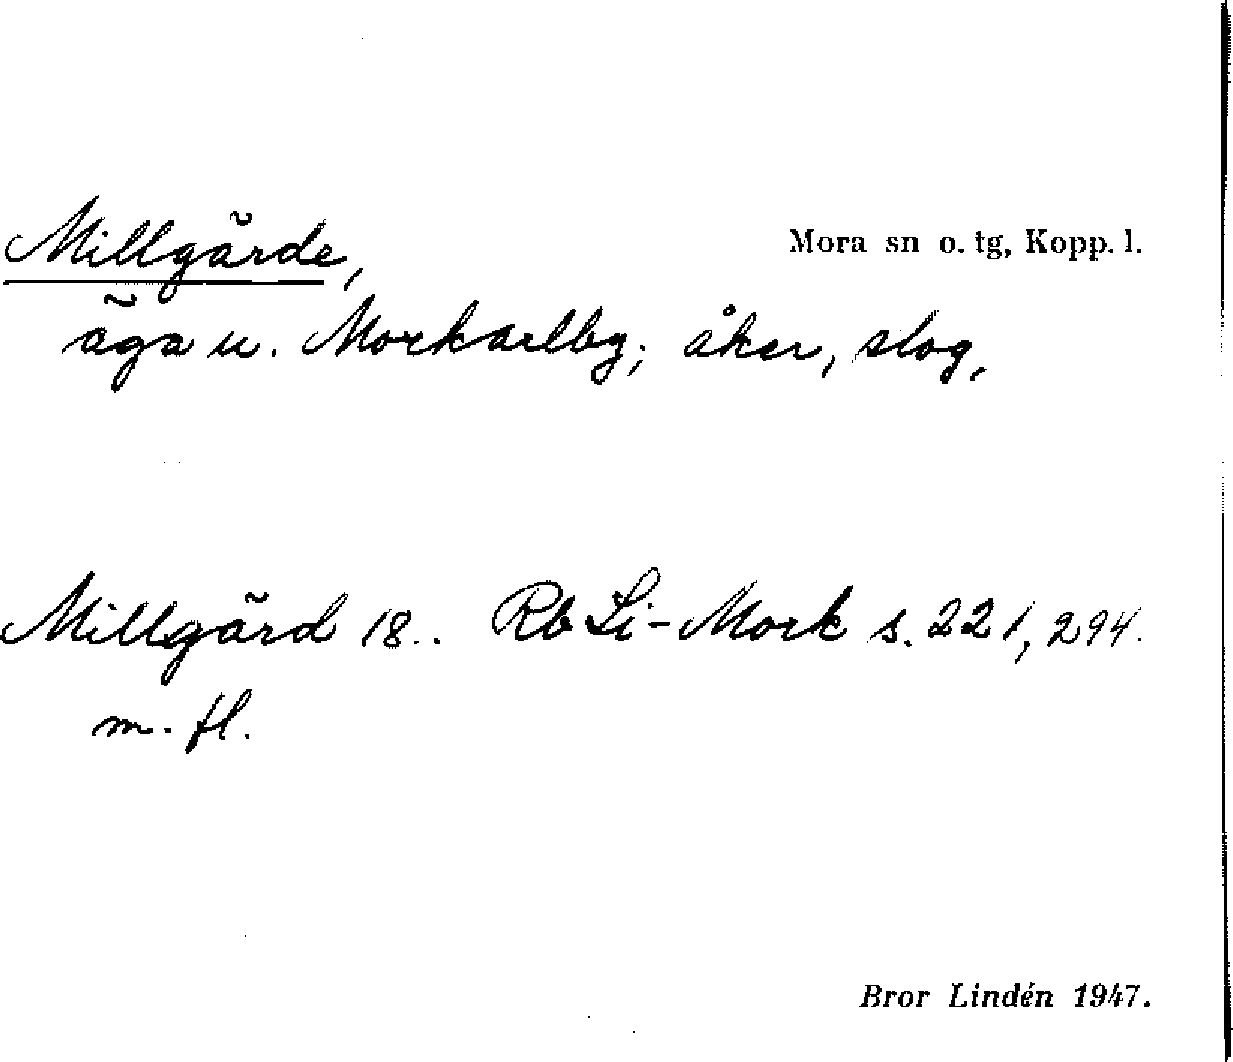 Millgärde,
Mora sn o. tg, Kopp. l.
äga u. Morkarlby; åker, slog,
Millgärd 18.. Rb Li-Mork s. 221, 294.
m. fl.
Bror Lindén 1947.